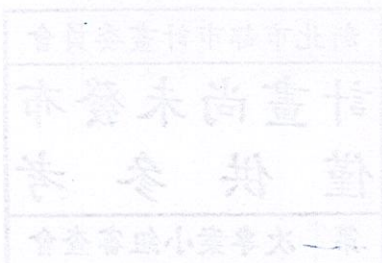 新北市都市計畫委員會
計畫尚未發布
僅供參考
次專案小組審查會